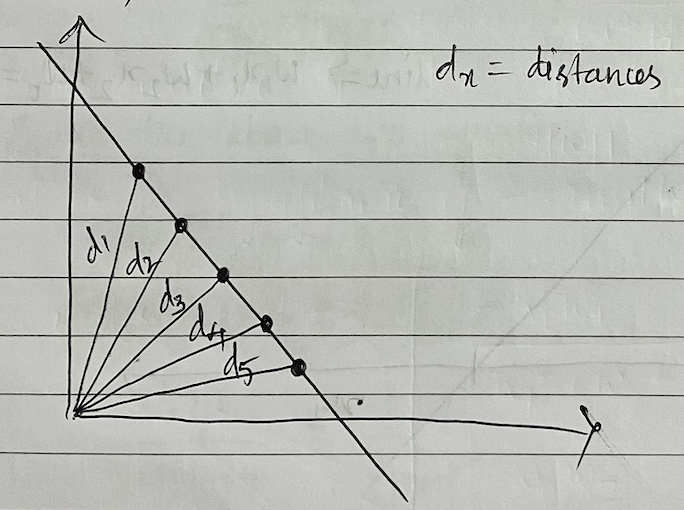 dn = distances
d1
d2
d3
d4
d5